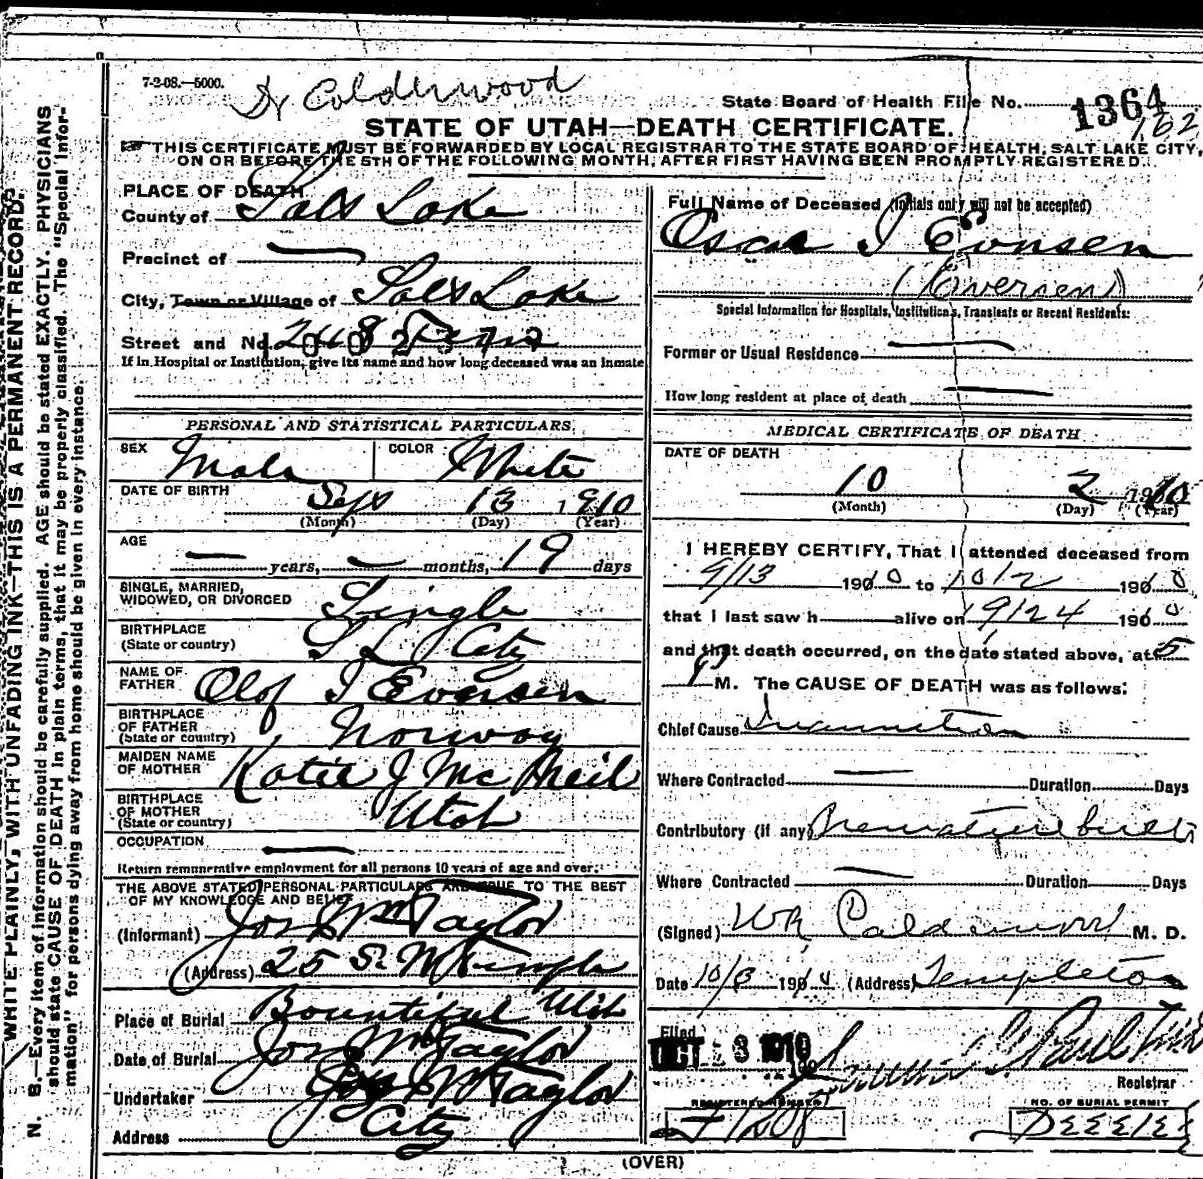 7-2-08.—5000.
Dr Calderwood
State Board of Health File No. 1364
162
STATE OF UTAH—DEATH CERTIFICATE.
THIS CERTIFICATE MUST BE FORWARDED BY LOCAL REGISTRAR TO THE STATE BOARD OF HEALTH, SALT LAKE CITY,
ON OR BEFORE THE 5TH OF THE FOLLOWING MONTH, AFTER FIRST HAVING BEEN PROMPTLY REGISTERED.
WRITE PLAINLY, WITH UNFADING INK—THIS IS A PERMANENT RECORD.
N. B.—Every item of information should be carefully supplied. AGE should be stated EXACTLY. PHYSICIANS
should state CAUSE OF DEATH in plain terms, that it may be properly classified. The "Special Infor-
mation" for persons dying away from home should be given in every instance.
PLACE OF DEATH
County of Salt Lake
Precinct of —
City, Town or Village of Salt Lake
Street and No.
If in Hospital or Institution, give its name and how long deceased was an inmate
PERSONAL AND STATISTICAL PARTICULARS
SEX Male COLOR White
DATE OF BIRTH Sept 13 1910
(Month) (Day) (Year)
AGE
— years, — months, 19 days
SINGLE, MARRIED,
WIDOWED, OR DIVORCED Single
BIRTHPLACE
(State or country) S L City
NAME OF
FATHER Olof I Eversen
BIRTHPLACE
OF FATHER
(State or country) Norway
MAIDEN NAME
OF MOTHER Katie J McNeil
BIRTHPLACE
OF MOTHER
(State or country) Utah
OCCUPATION —
Return remunerative employment for all persons 10 years of age and over.
THE ABOVE STATED PERSONAL PARTICULARS ARE TRUE TO THE BEST
OF MY KNOWLEDGE AND BELIEF
(Informant) Jos Wm Taylor
(Address) 25 S. W Temple
Place of Burial Bountiful Utah
Date of Burial Jos Wm Taylor
Undertaker Jos Wm Taylor
Address City
Full Name of Deceased (Initials only will not be accepted)
Oscar I Evensen
(Eversen)
Special Information for Hospitals, Institutions, Transients or Recent Residents:
Former or Usual Residence —
How long resident at place of death —
MEDICAL CERTIFICATE OF DEATH
DATE OF DEATH
10 2 1910
(Month) (Day) (Year)
I HEREBY CERTIFY, That I attended deceased from
9/13 1910 to 10/2 1910
that I last saw h alive on 9/24 1910
and that death occurred, on the date stated above, at 5
M. The CAUSE OF DEATH was as follows:
Chief Cause Inanition
Where Contracted — Duration Days
Contributory (if any) Premature birth
Where Contracted — Duration Days
(Signed) WR Calderwood M. D.
Date 10/3 (Address) Templeton
Filed
OCT 3 1910
Registrar
REGISTERED NUMBER
NO. OF BURIAL PERMIT
(OVER)